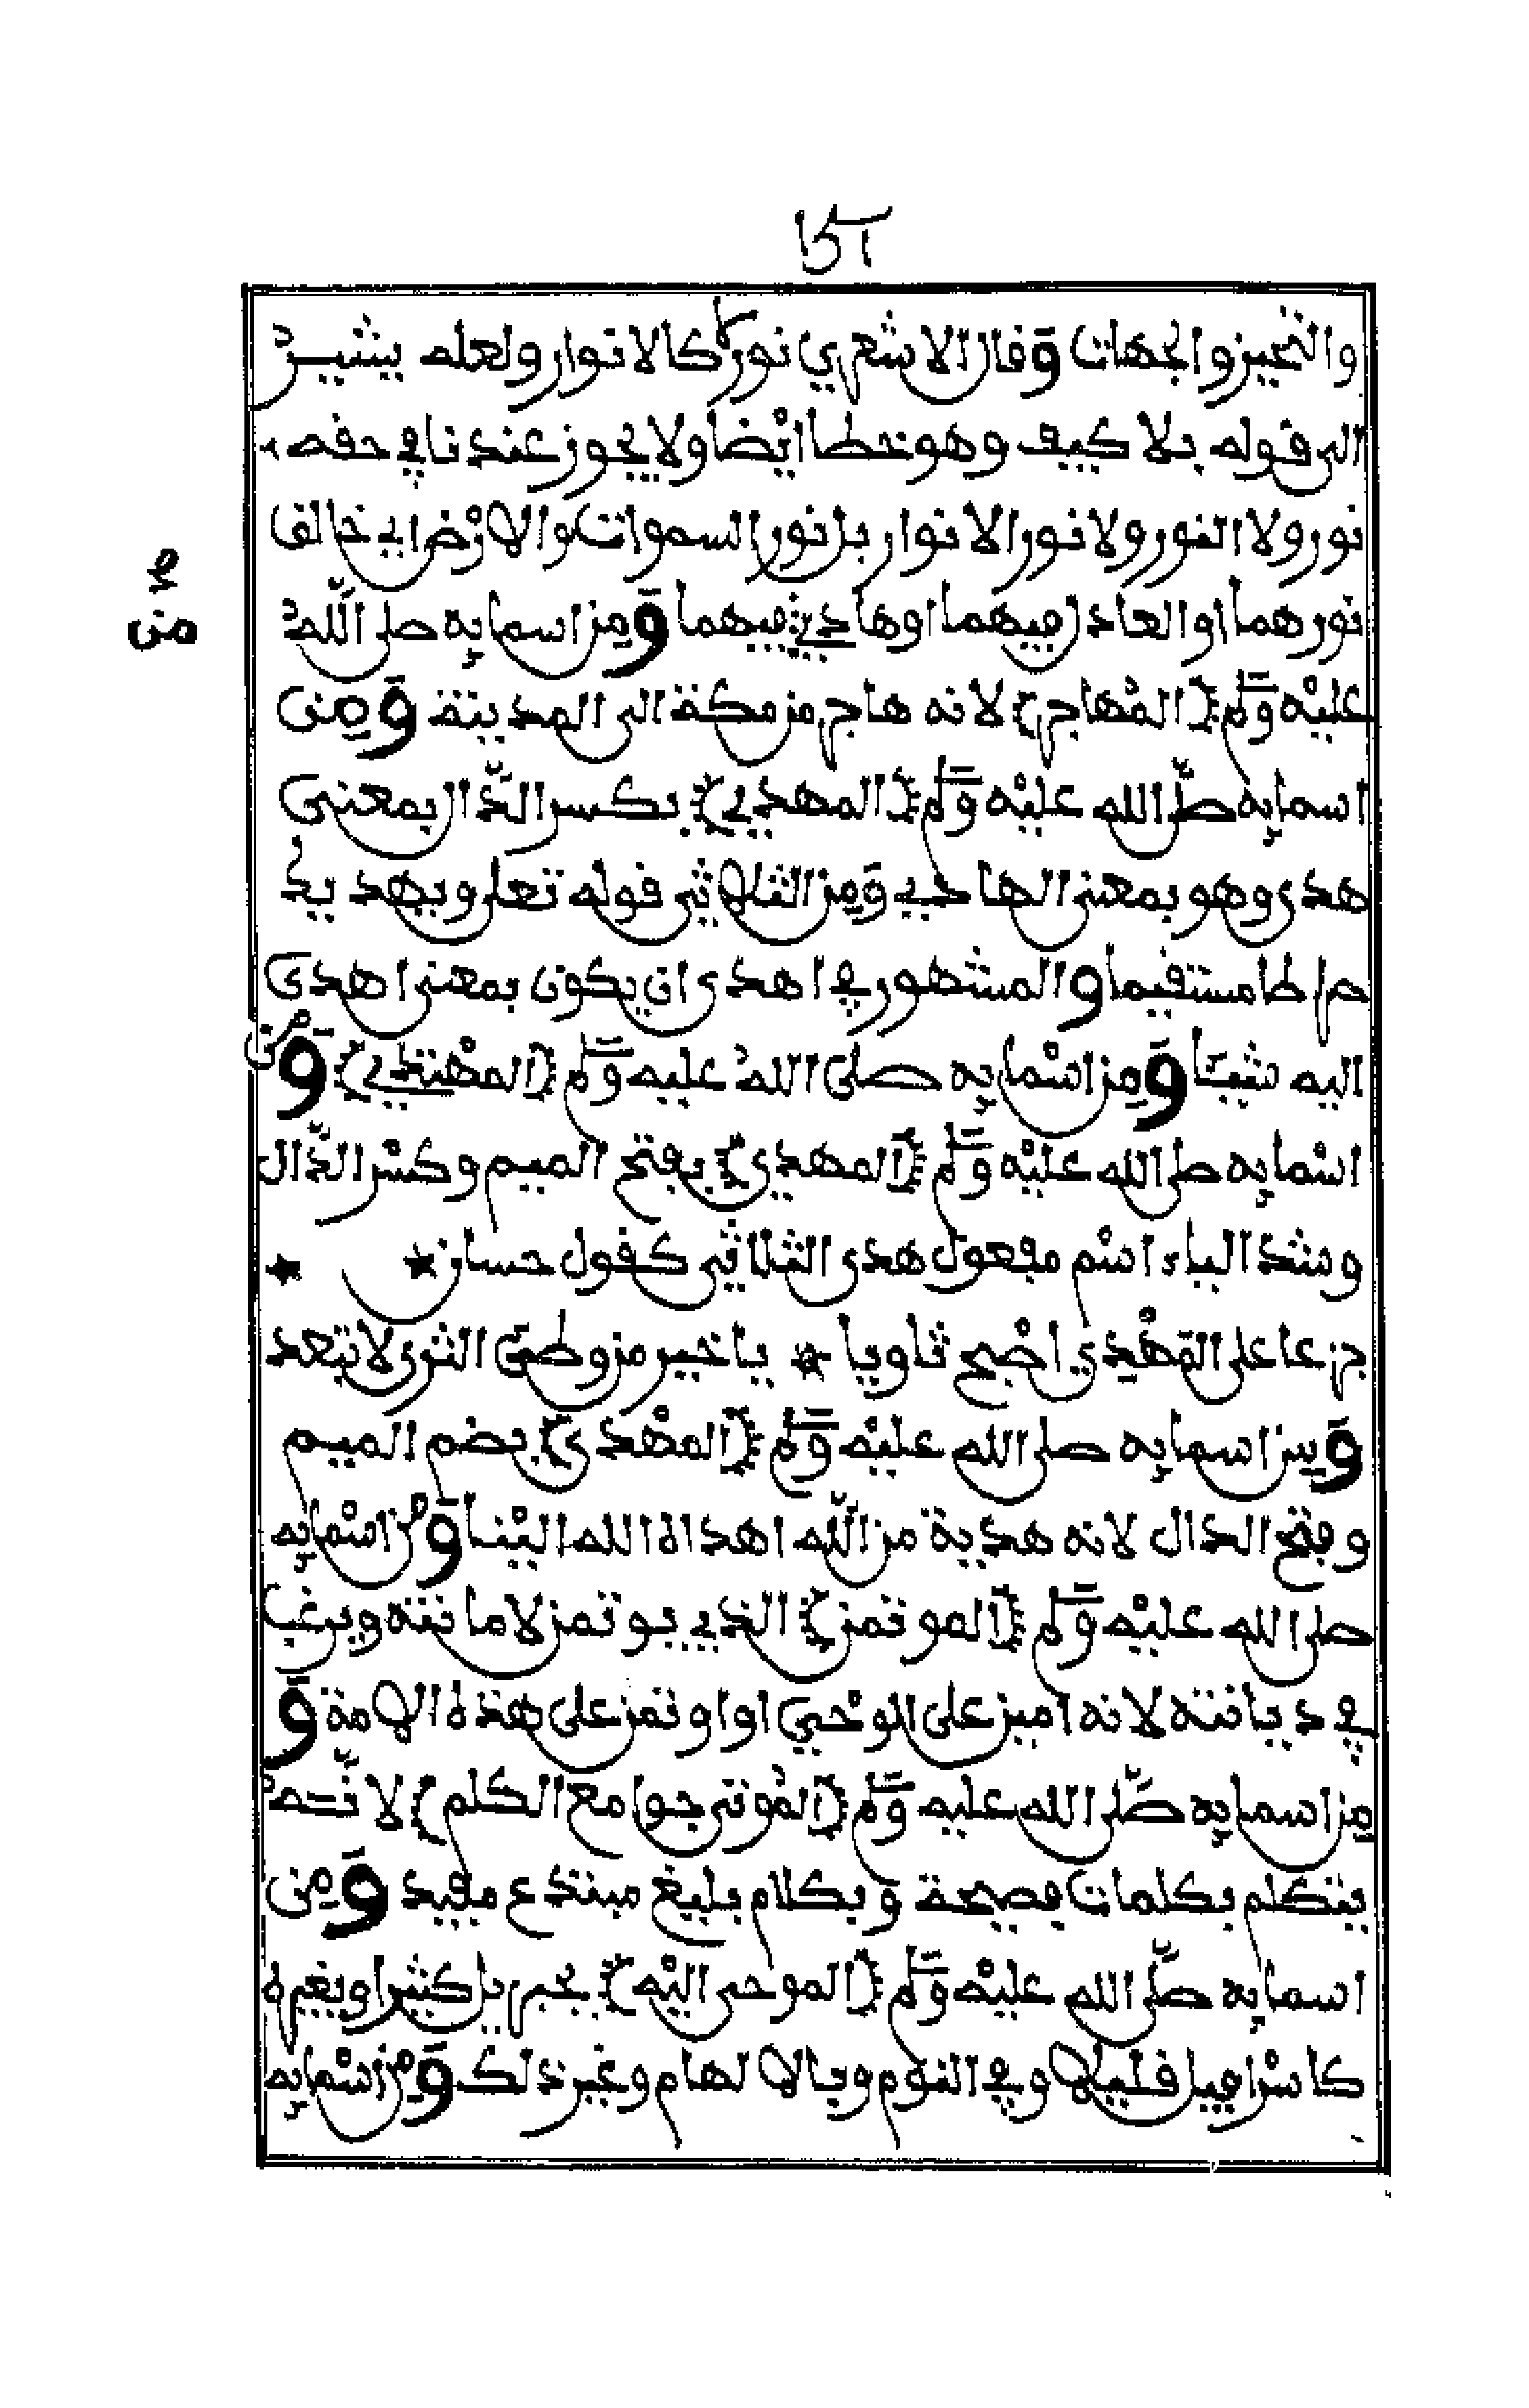 والتحيز والجهات وقال الاشعري نور لا كالانوار ولعله يشير
الى قوله بلا كيف وهو خطا ايضا ولا يجوز عندنا في حقه
نور ولا النور ولا نور الانوار بل نور السموات والارض اي خالق
نورهما او العادل فيهما او هادي من فيهما ومن اسمايه صلى الله
عليه وسلم (المهاجر) لانه هاجر من مكة الى المدينة ومن
اسمايه صلى الله عليه وسلم (المهدي) بكسر الدال بمعنى
هدى وهو بمعنى الهادي ومن الثلاثي قوله تعلى ويهديك
صراطا مستقيما والمشهور في اهدى ان يكون بمعنى اهدى
اليه شيئا ومن اسمايه صلى الله عليه وسلم (المهتدي) ومن
اسمايه صلى الله عليه وسلم (المهدي) بفتح الميم وكسر الدال
وشد الياء اسم مفعول هدى الثلاثي كقول حسان
جزعا على المهدي اضحى ثاويا ★ يا خير من وطئ الثرى لا تبعد
ومن اسمايه صلى الله عليه وسلم (المهدى) بضم الميم
وفتح الدال لانه هدية من الله اهداه الله الينا ومن اسمايه
صلى الله عليه وسلم (الموتمن) الذي يوتمن لامانته ويرغب
في ديانته لانه امين على الوحي او اوتمن على هذه الامة و
من اسمايه صلى الله عليه وسلم (الموتى جوامع الكلم) لانه
يتكلم بكلمات فصيحة وبكلام بليغ مبتدع مفيد ومن
اسمايه صلى الله عليه وسلم (الموحى اليه) بجبريل كثيرا وبغيره
كاسرافيل قليلا وفي النوم وبالالهام وغير ذلك ومن اسمايه
من